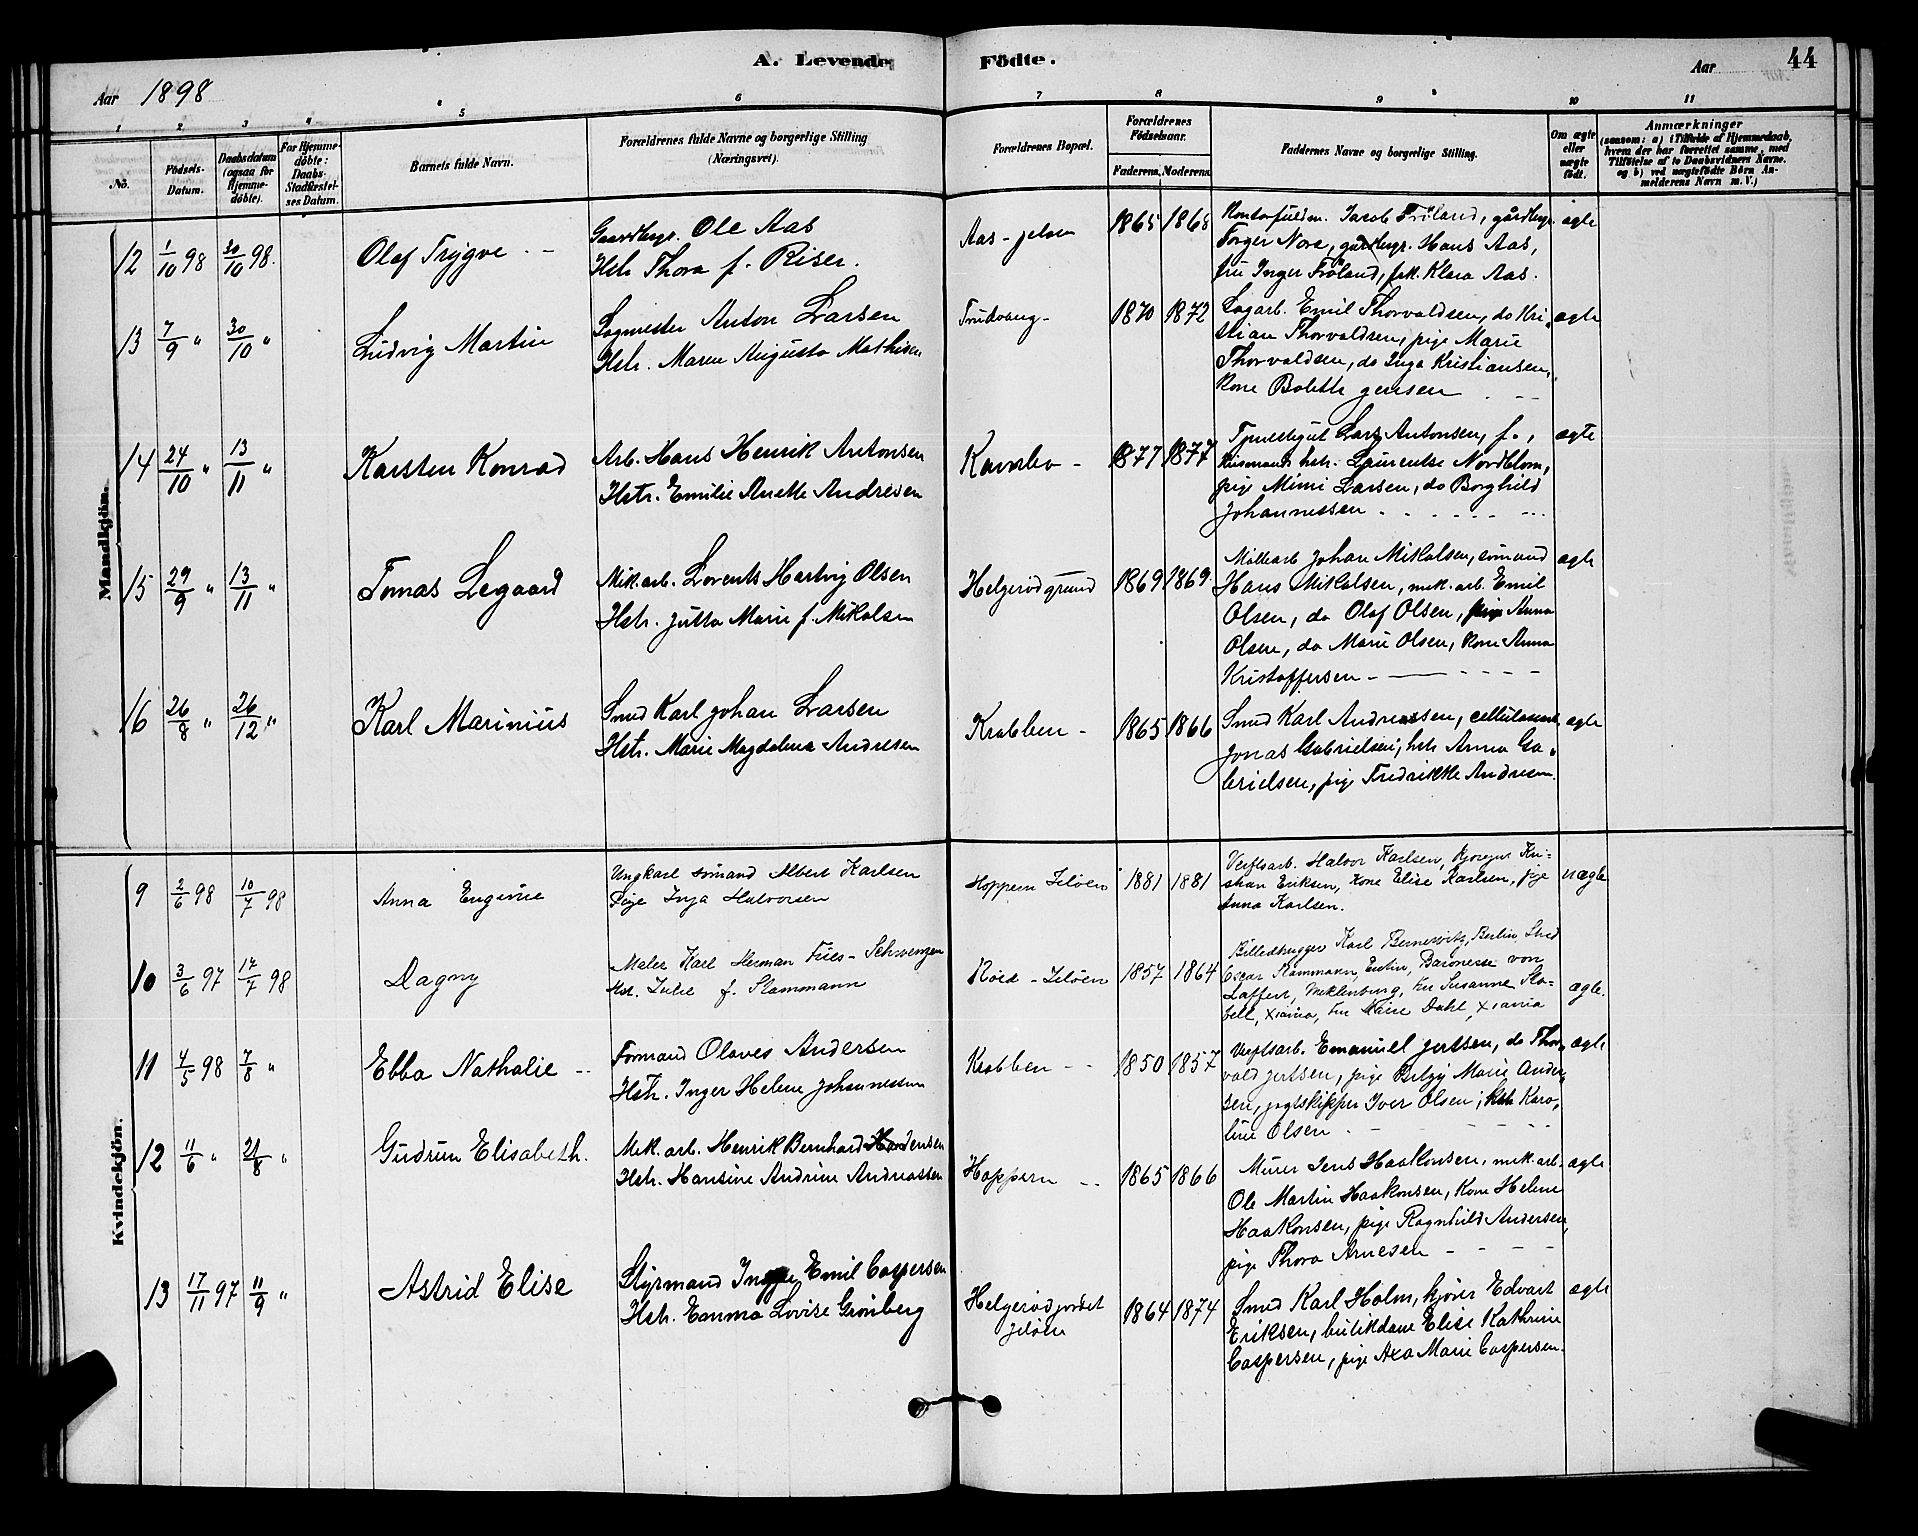 A. Levende Födte.
44
Aar 1898
Aar
1 2 3 4 5 6 7 8 9 10 11
No.
Födsels-Datum.
Daabsdatum (ogsaa for Hjemme-döbte).
For Hjemme-döbte: Daabs-Stadfæstel-ses Datum.
Barnets fulde Navn.
Forældrenes fulde Navne og borgerlige Stilling (Næringsvei).
Forældrenes Bopæl.
Forældrenes Födselsaar.
Faderens. Moderens.
Faddernes Navne og borgerlige Stilling.
Om ægte eller uægte födt.
Anmærkninger
(saasom: a) i Tilfælde af Hjemmedaab, hvem der har forrettet samme, med Tilföielse af to Daabsvidners Navne. og b) ved uægtefödte Börn An-melderens Navn m. V.)
Mandkjön.
12 1/10 98 30/10 98. Olaf Trygve
Gaardbrgr. Ole Aas
Hstr Thora f. Riser.
Aas - Jeløen 1865 1868
Kontorfuldm. Jacob Fröland, gårdbrgr.
Torger Nore, gårdbrgr. Hans Aas,
fru Inger Fröland, frk. Klara Aas.
ægte
13 7/9 " 30/10 " Ludvig Martin
Sagmester Anton Larsen
Hstr. Maren Augusta Mathisen
Trudvang - 1870 1872
Sagarb. Emil Thorvaldsen, do Kri-
stian Thorvaldsen, pige Marie
Thorvaldsen, do Inga Kristiansen,
Kone Bolette Jensen
ægte
14 24/10 " 13/11 " Karsten Konrad
Arb. Hans Henrik Antonsen
Hstr. Emilie Anette Andresen
1877 1877
Lars Antonsen, f.,
hstr. Laurentse Nordblom,
pige Mimi Larsen, do Borghild
Johannessen
ægte
15 29/9 " 13/11 " Tomas Legaard
Mik. arb. Lorents Hartvig Olsen
Hstr. Jutta Marie f. Mikalsen
Helgerødgrund 1869 1869
Johan Mikalsen, sömand
Hans Mikalsen, mek. arb. Emil
Olsen, do Olaf Olsen, pige Anna
Olsen, do Marie Olsen, Kone Anna
Kristoffersen
ægte
16 26/8 " 26/12 " Karl Marinius
Smed Karl Johan Larsen
Hstr. Marie Magdalena Andresen
Krabben - 1865 1866
Smed Karl Andreassen, cellulosearb.
Jonas Gabrielsen, hstr Anna Ga-
brielsen, pige Fredrikke Andresen.
ægte
Kvindekjön.
9 2/6 98 10/7 98 Anna Enginie
Ungkarl sömand Albert Karlsen
Pige Inga Halvorsen
Hoppern Jeløen 1881 1881
Verftsarb. Halvor Karlsen, Kjøregut Kri-
stian Eriksen, Kone Elise Karlsen, pige
Anna Karlsen.
uægte
10 3/6 97 17/7 98 Dagny
Maler Karl Herman Fries-Schwenzen
Hst. Julie f. Stammann
Röed - Jeløen 1857 1864
Billedhugger Karl Bernewitz, Berlin, Stud
Oscar Stammann, Eutin, Baronesse von
Laffert, Meklenburg, Fru Susanne Sla-
bell, Xiania, Fru Marie Dahl, Xiania
ægte.
11 4/5 98 7/8 " Ebba Nathalie
Formand Olaves Andersen
Hstr. Inger Helene Johannessen
Krabben - - 1850 1857
Verftsarb. Emanuel Jertsen, do Thor-
vald Jertsen, pige Marie Ander-
sen, jagtskipper Iver Olsen, hstr Karo-
line Olsen
ægte
12 11/6 " 21/8 " Gudrun Elisabeth.
Mek. arb. Henrik Bernhard
Hstr. Hansine Andrine Andreassen
Hoppern - - 1865 1866
Murer Jens Haakonsen, mek. arb.
Ole Martin Haakonsen, Kone Helene
Haakonsen, pige Ragnhild Andersen,
pige Thora Arnesen
ægte
13 17/11 97 11/9 " Astrid Elise
Styrmand Emil Caspersen
Hstr. Emma Lovise Grönberg
Helgerödjordet
Jeløen
1864 1874
Smed Karl Holm, kjører Edvart
Eriksen, butikdame Elise Kathrine
Caspersen, pige Axa Marie Caspersen.
ægte